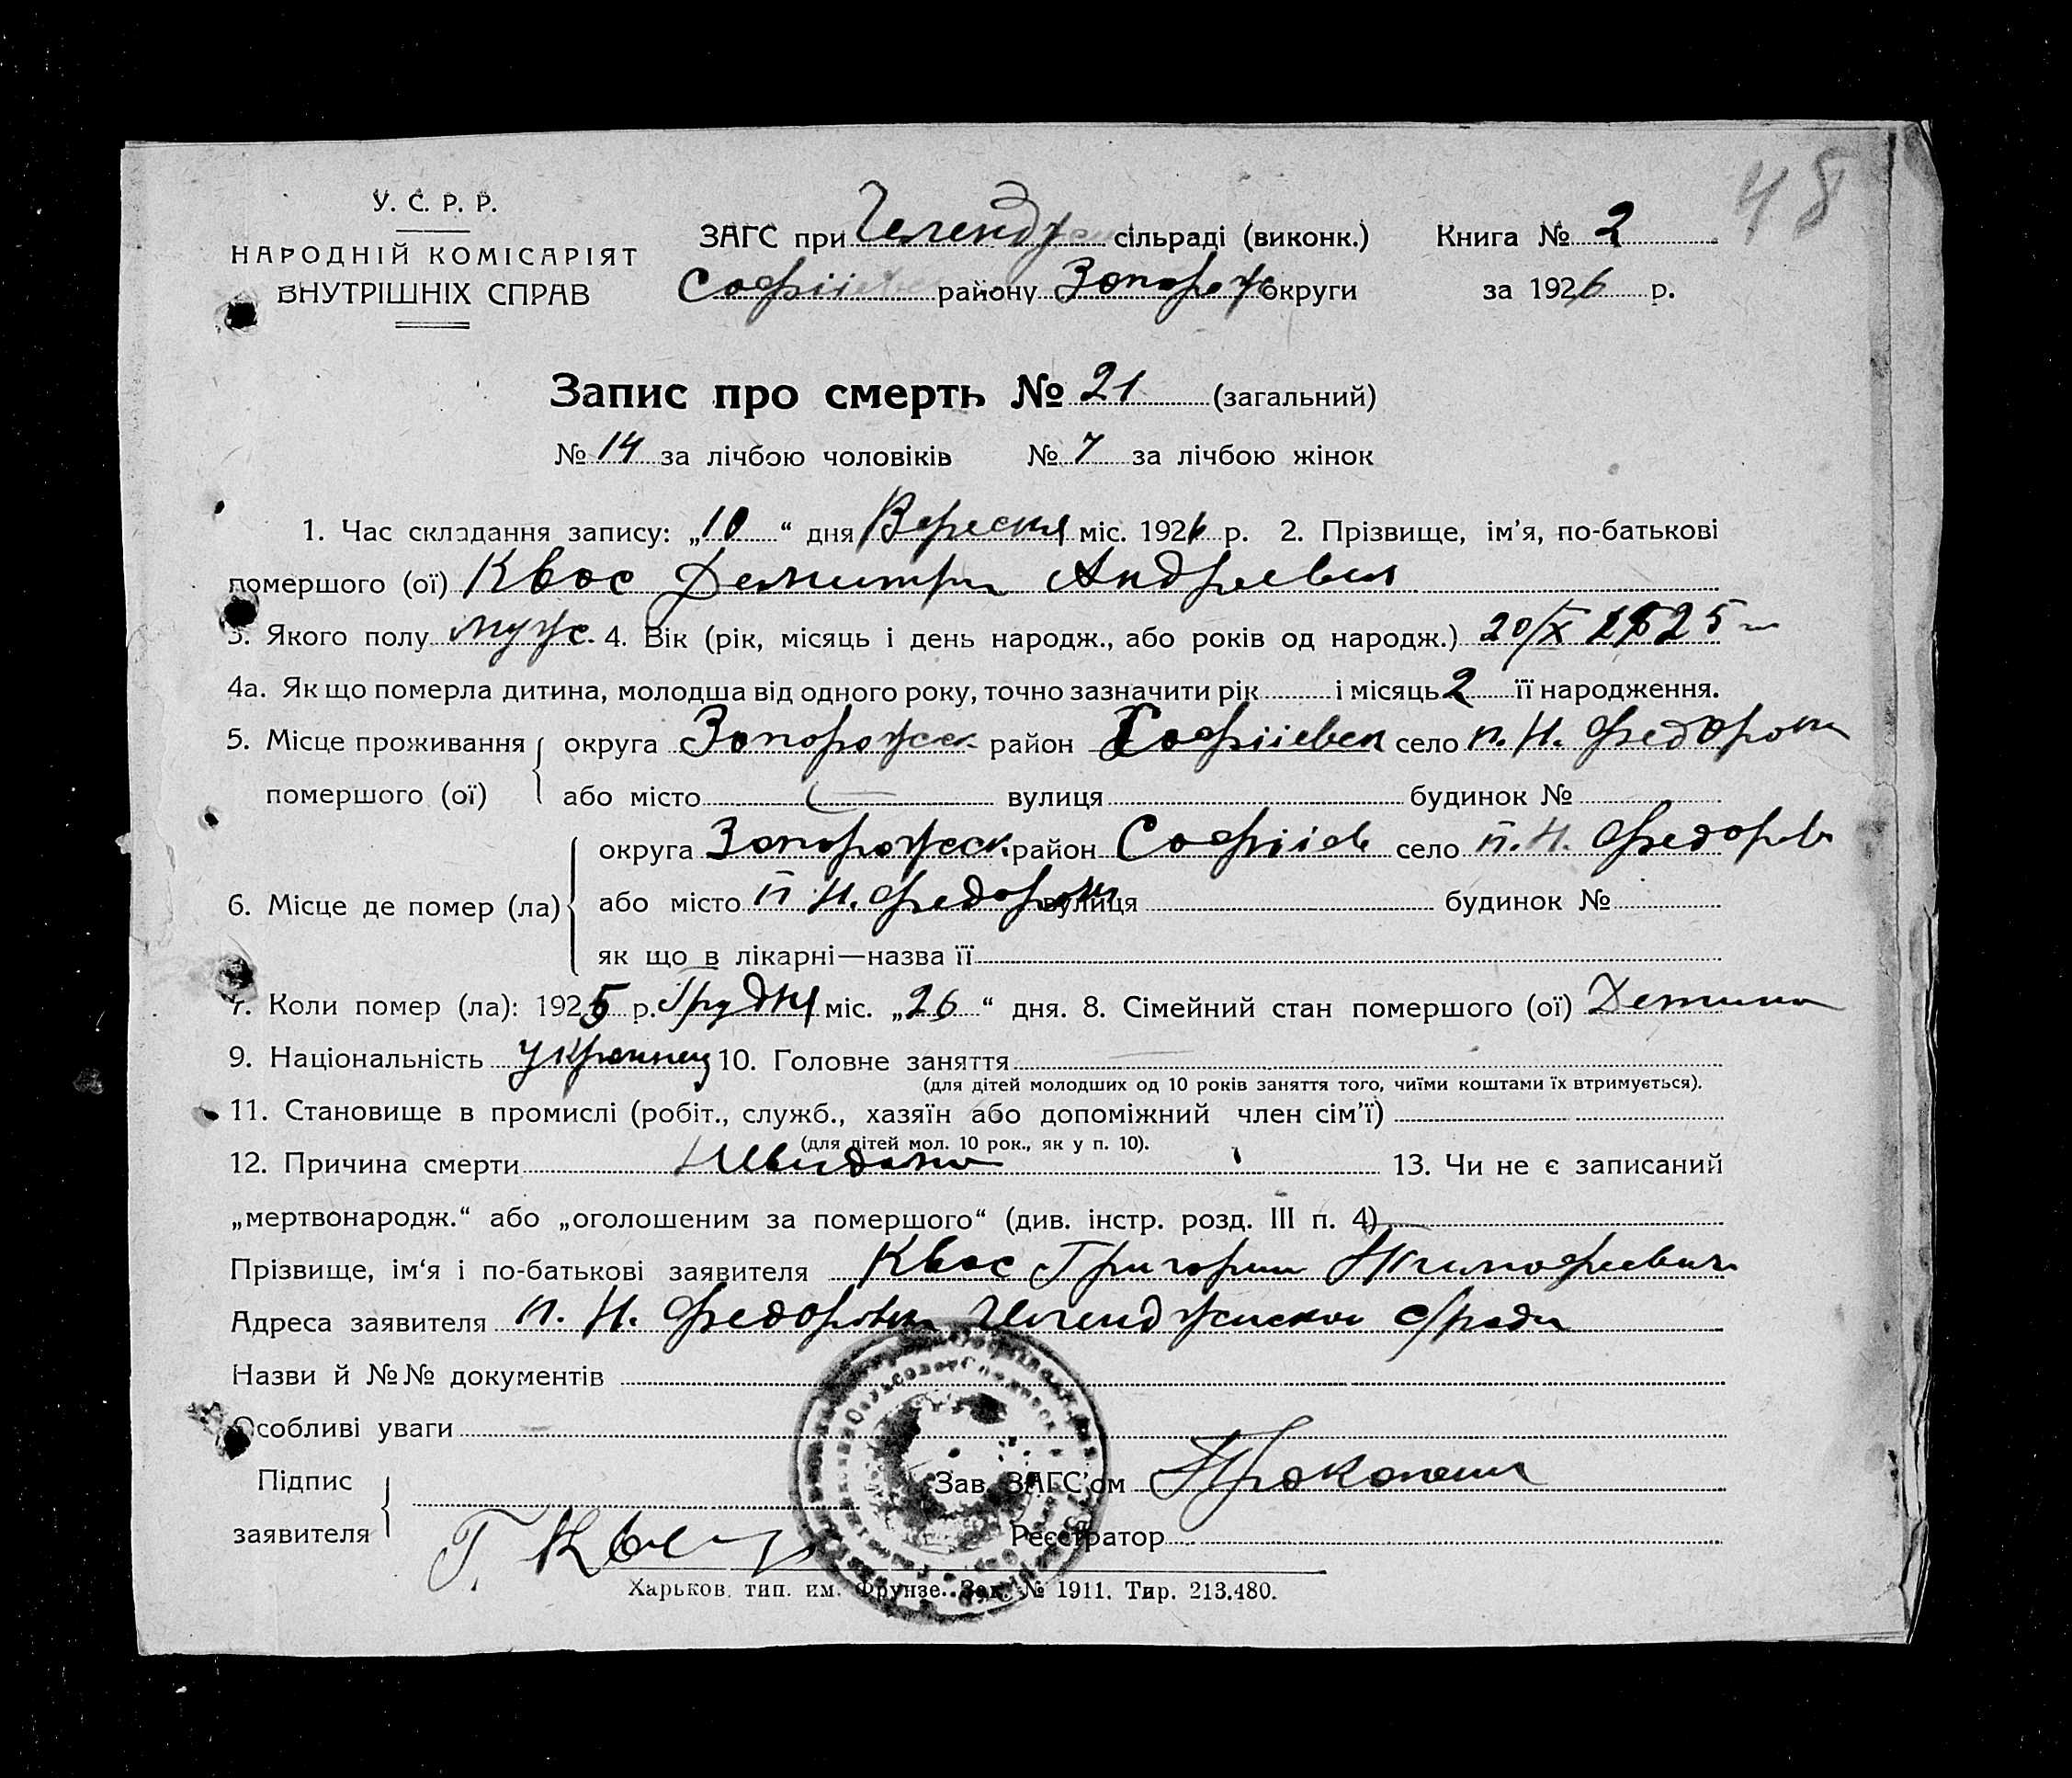 48
У. С. Р. Р.
НАРОДНІЙ КОМІСАРІЯТ
ВНУТРІШНІХ СПРАВ
ЗАГС при сільраді (виконк.) Книга № 2
Софіїевск району Запорож округи за 1926 р.
Запис про смерть № 21 (загальний)
№ 14 за лічбою чоловіків № 7 за лічбою жінок
1. Час складання запису: „10“ дня Вересня міс. 1926 р. 2. Прізвище, ім'я, по-батькові
помершого (ої) Квас Демитри Андреевич
3. Якого полу муж. 4. Вік (рік, місяць і день народж., або років од народж.) 20/X 1925
4а. Як що померла дитина, молодша від одного року, точно зазначити рік і місяць 2 її народження.
5. Місце проживання округа Запорожск район Софіієвск село п. Н. Федоровка
помершого (ої) або місто вулиця будинок №
округа Запорожск. район Софіїв село п. Н. Федоров
6. Місце де помер (ла) або місто п Н. Федоровк вулиця будинок №
як що в лікарні—назва її
7. Коли помер (ла): 1925 р. Грудня міс. „26“ дня. 8. Сімейний стан помершого (ої) Детина
9. Національність Украинец 10. Головне заняття
(для дітей молодших од 10 років заняття того, чиїми коштами їх втримується).
11. Становище в промислі (робіт., служб., хазяїн або допоміжний член сім'ї)
(для дітей мол. 10 рок., як у п. 10).
12. Причина смерти 13. Чи не є записаний
„мертвонародж.“ або „оголошеним за помершого“ (див. інстр. розд. III п. 4)
Прізвище, ім'я і по-батькові заявителя Квас Григории Тимофеевич
Адреса заявителя п. Н. Федоровка с/ради
Назви й №№ документів
Особливі уваги
Підпис
заявителя Г. Квас
Зав. ЗАГС'ом
Реєстратор
Харьков. тип. им. Фрунзе. Зак. № 1911. Тир. 213.480.